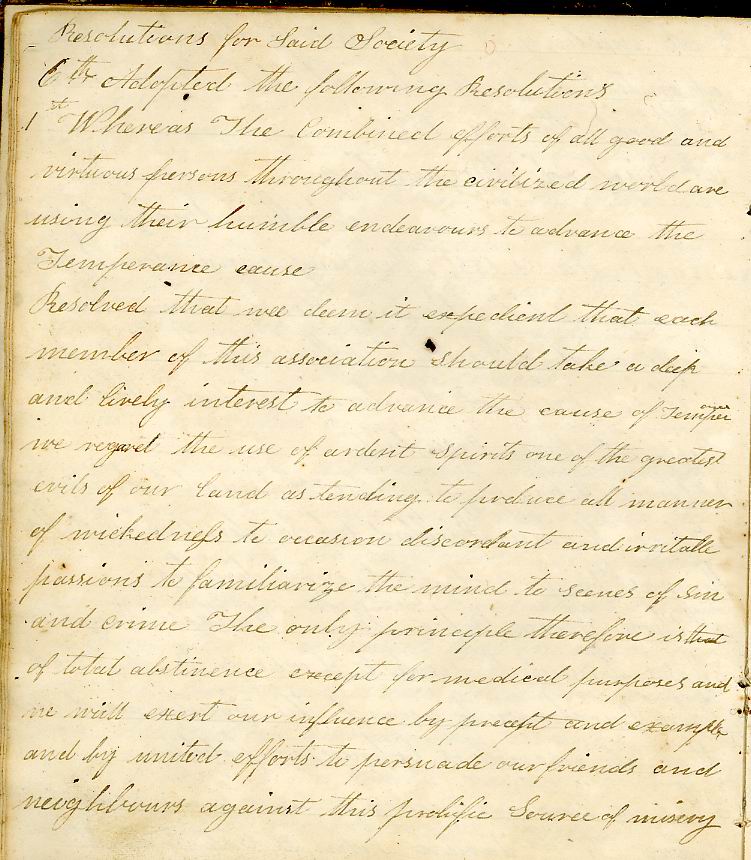 Resolutions for Said Society
6th Adopted the following Resolutions
1th Whereas The Combined efforts of all good and
virtuous persons throughout the civilized world are
using their humble endeavours to advance the
Temperance cause
Resolved that we deem it expedient that each
member of this association should take a deep
and lively interest to advance the cause of Temperance
we regard the use of ardent spirits one of the greatest
evils of our land as tending to produce all manner
of wickedness to occasion discordant and irritable
passions to familiarize the mind to scenes of sin
and crime The only principle therefore is that
of total abstinence except for medical purposes and
we will exert our influence by precept and example
and by united efforts to persuade our friends and
neighbours against this prolific Source of misery